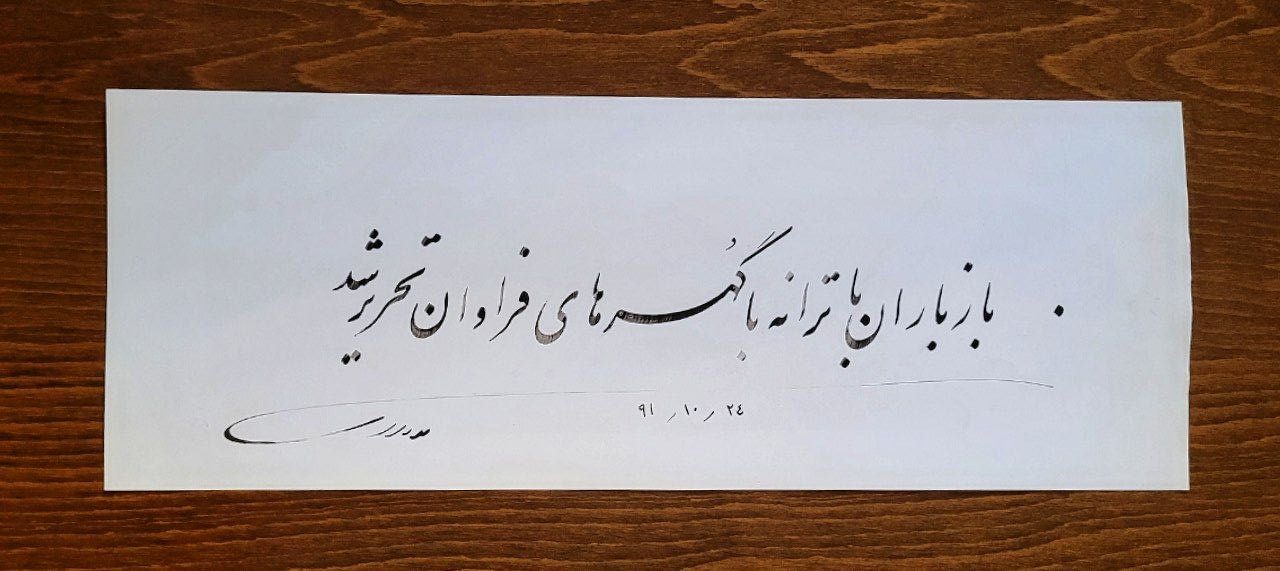 باز باران با ترانه با گُهرهای فراوان تحریر شد
۲٤ ر ۱۰ ر ۹۱